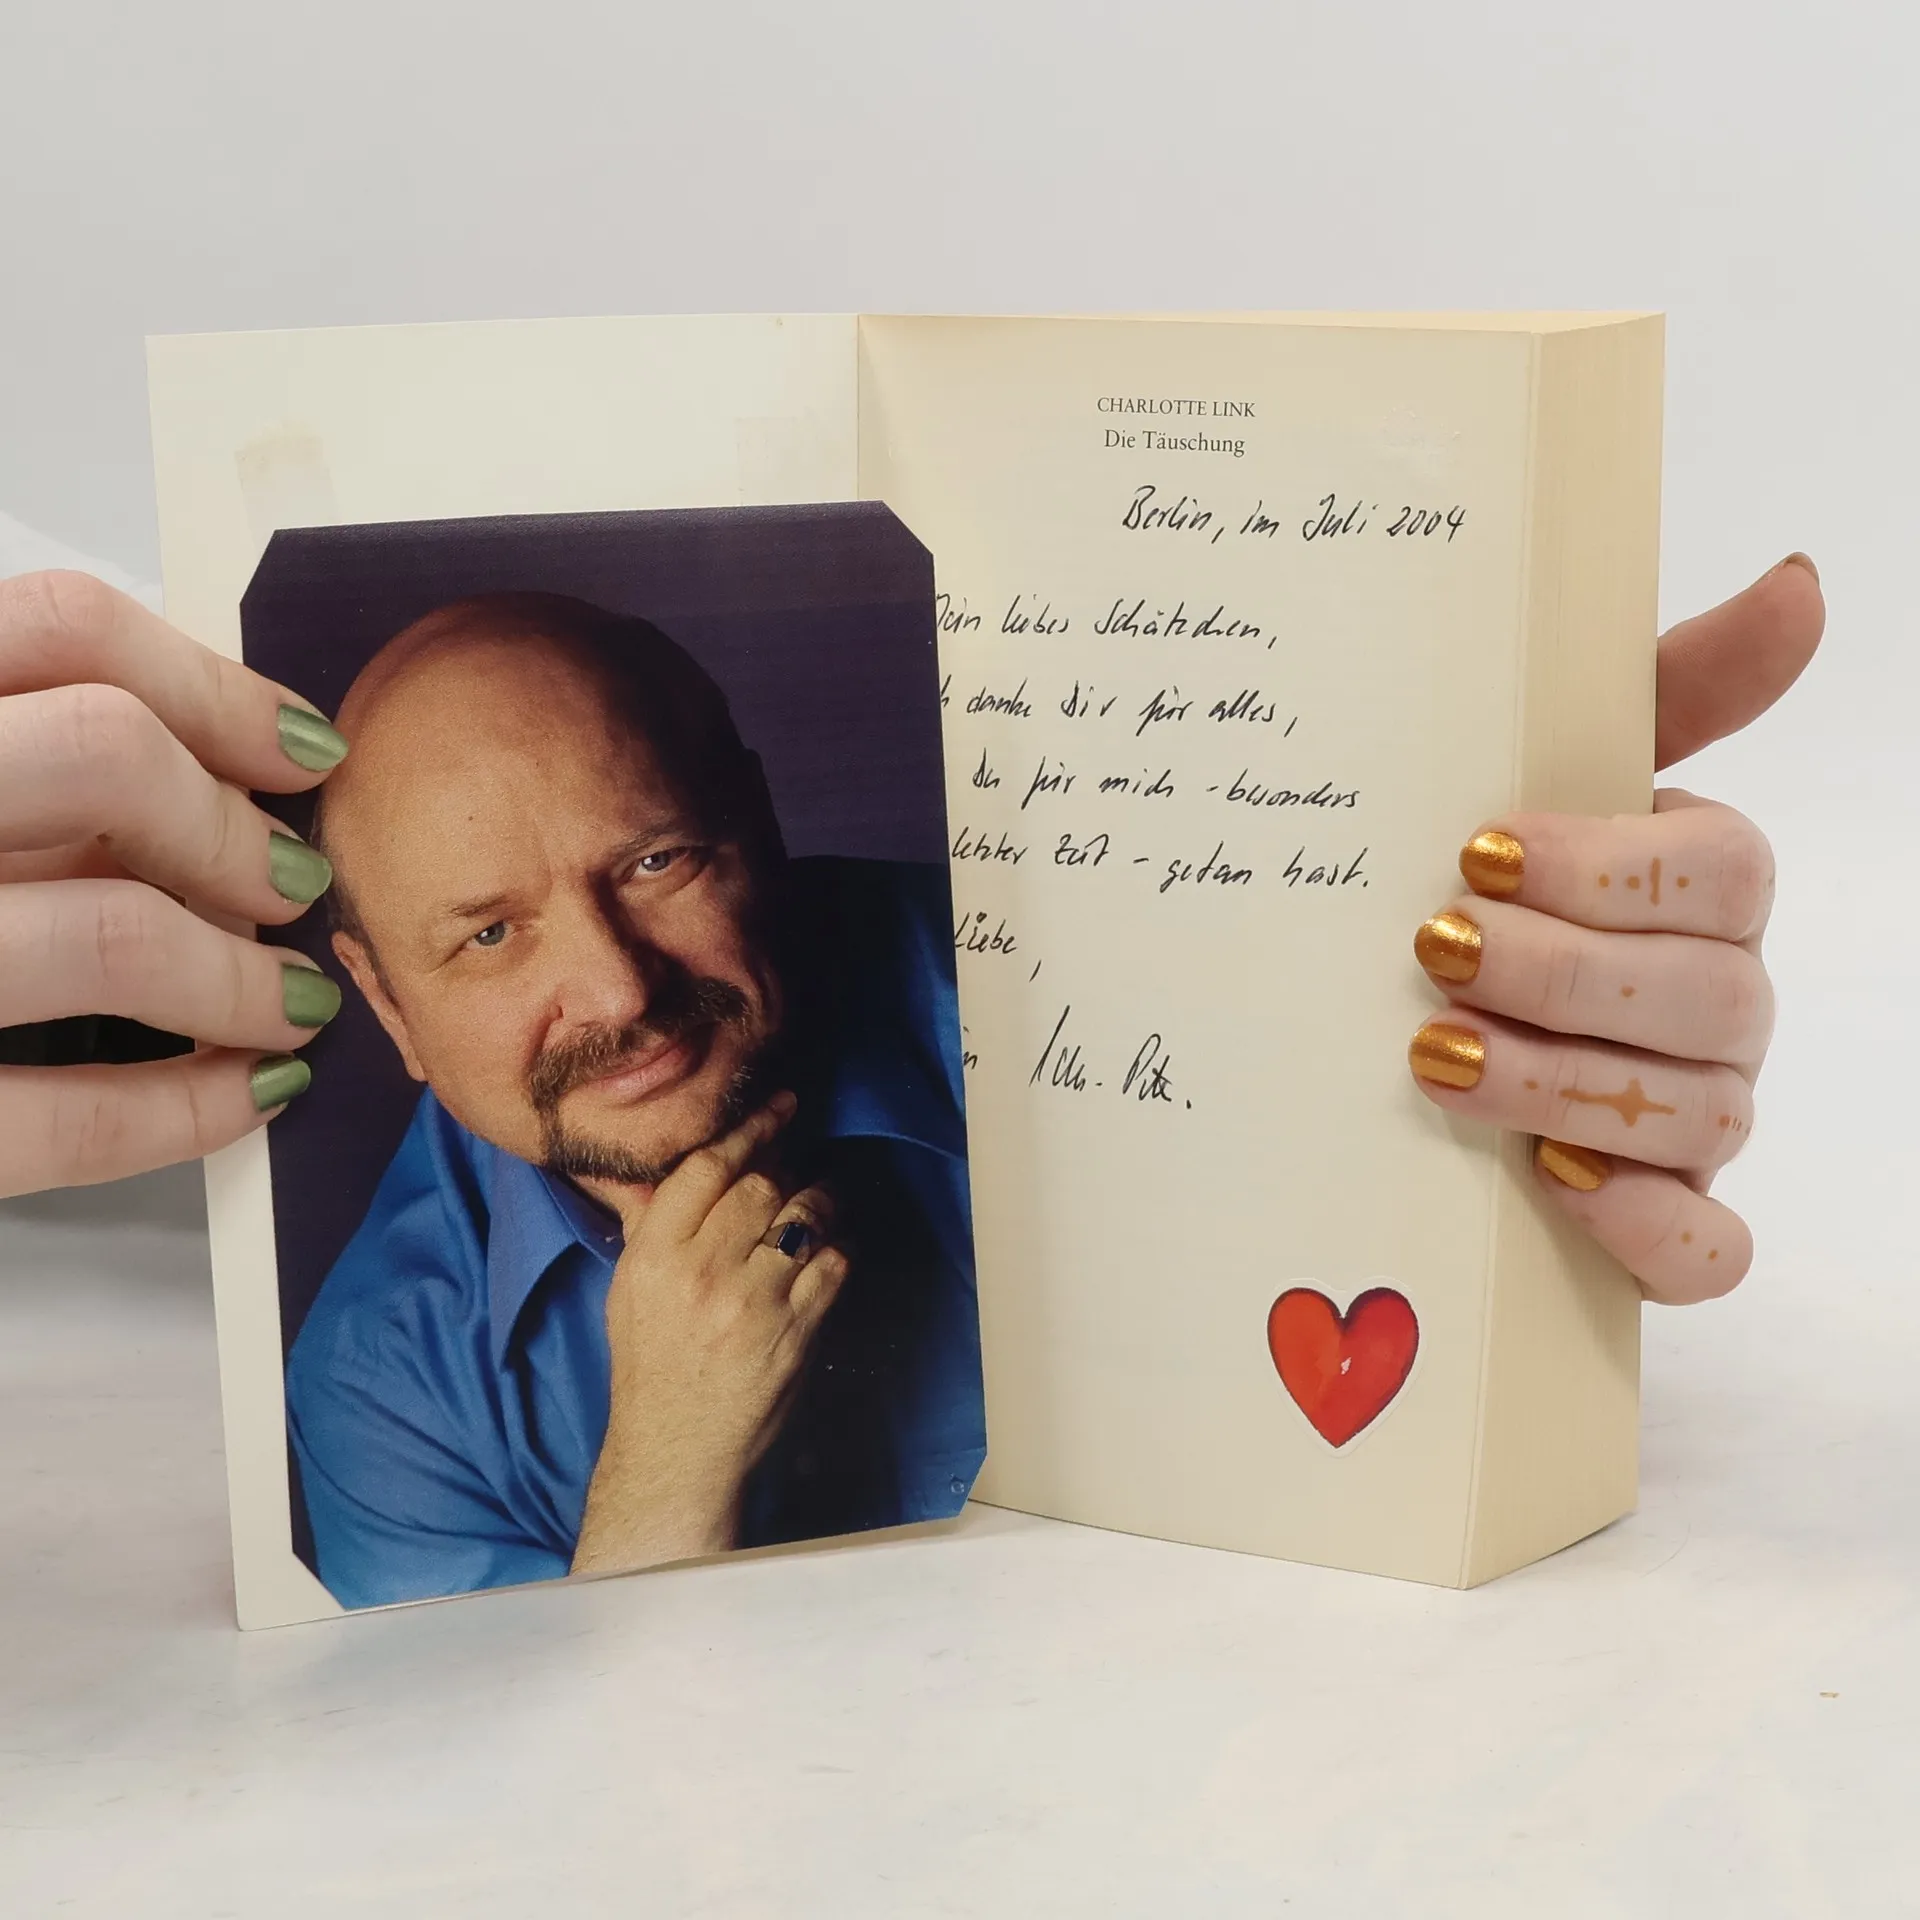 CHARLOTTE LINK
Die Täuschung
Berlin, im Juli 2004
liebes Schätzchen,
danke Dir für alles,
Du für mich - besonders
letzter Zeit - getan hast.
Liebe,